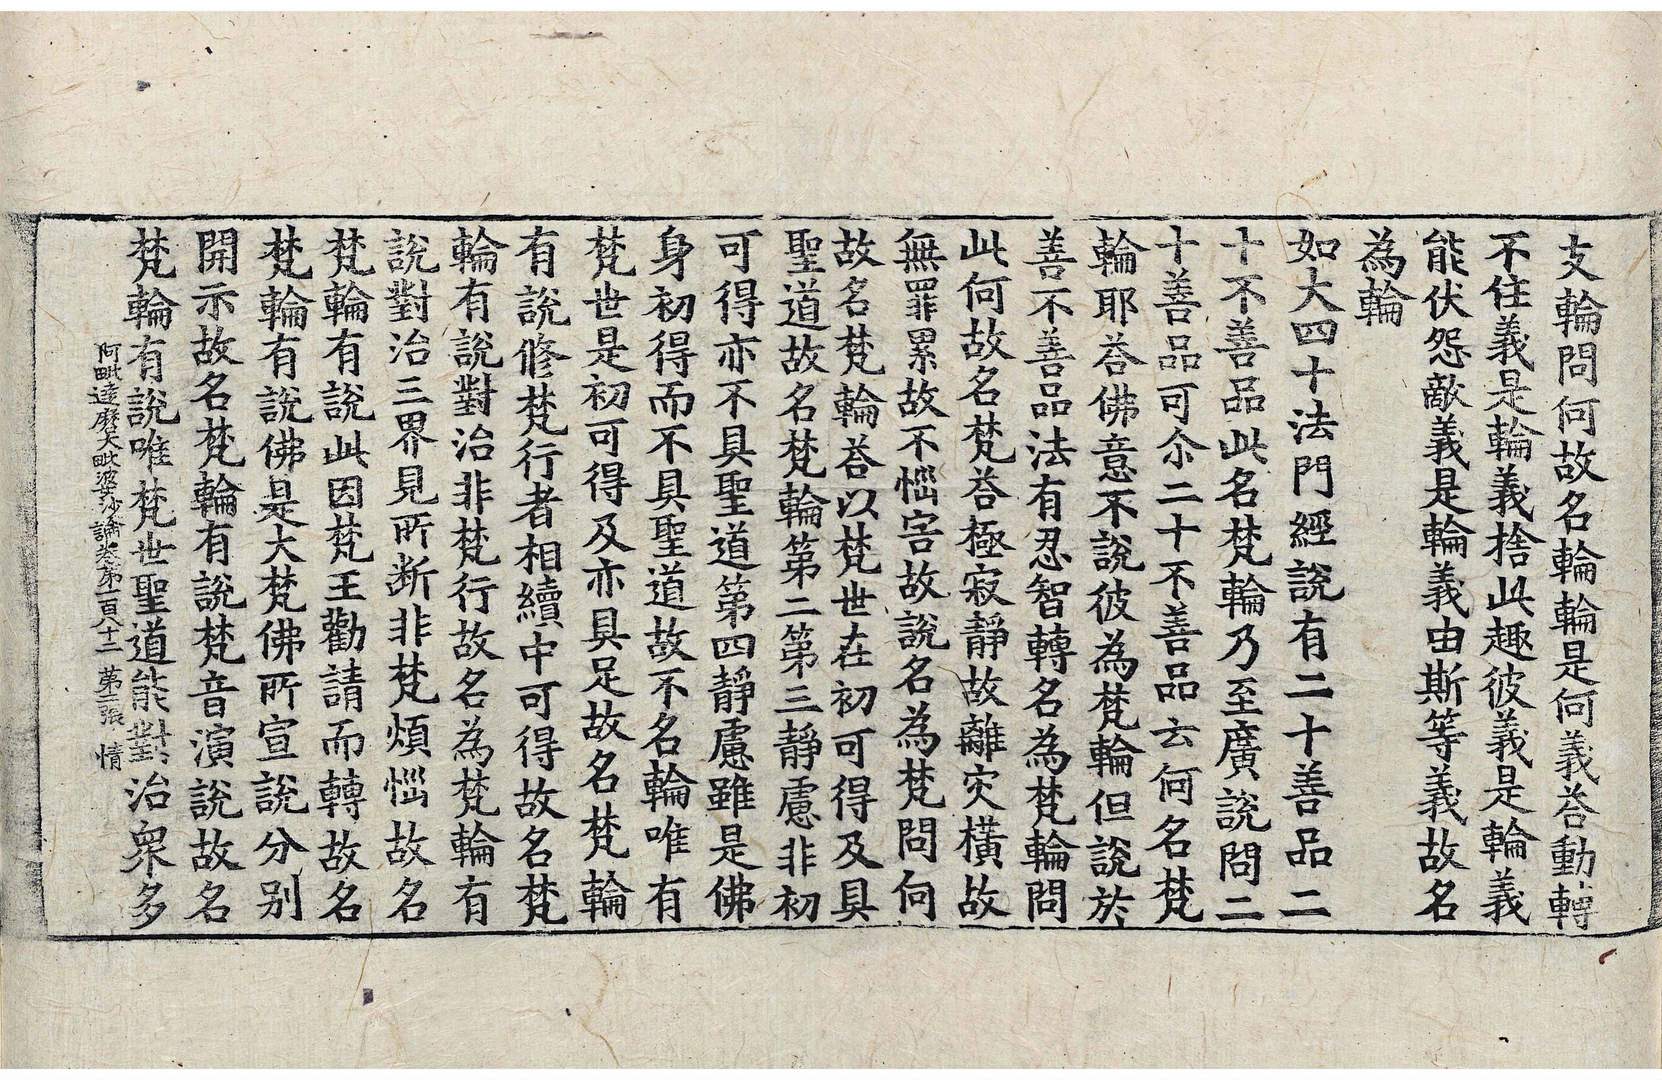 支輪問何故名輪輪是何義荅動轉
不住義是輪義捨此趣彼義是輪義
能伏怨敵義是輪義由斯等義故名
為輪
如大四十法門經說有二十善品二
十不善品此名梵輪乃至廣說問二
十善品可尒二十不善品云何名梵
輪耶荅佛意不說彼為梵輪但說於
善不善品法有忍智轉名為梵輪問
此何故名梵荅極寂靜故離灾橫故
無罪累故不惱害故說名為梵問何
故名梵輪荅以梵世在初可得及具
聖道故名梵輪第二第三靜慮非初
可得亦不具聖道第四靜慮雖是佛
身初得而不具聖道故不名輪唯有
梵世是初可得及亦具足故名梵輪
有說修梵行者相續中可得故名梵
輪有說對治非梵行故名為梵輪有
說對治三界見所斷非梵煩惱故名
梵輪有說此因梵王勸請而轉故名
梵輪有說佛是大梵佛所宣說分別
開示故名梵輪有說梵音演說故名
梵輪有說唯梵世聖道能對治衆多
阿毗達磨大毗婆沙論卷第一百八十二 第二張 情